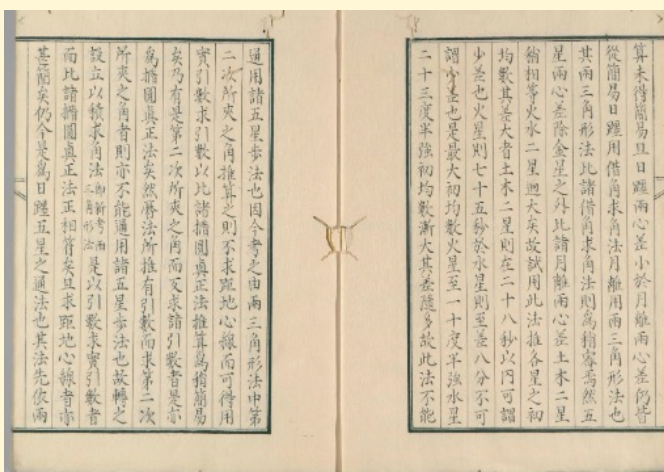 算未得簡易且日躔兩心差小於月離兩心差仍皆
從簡易日躔用借角求角法月離用兩三角形法也
其兩三角形法比諸借角求角法則為稍密焉然五
星兩心差除金星之外比諸月離兩心差土木二星
稍相等火水二星迥大矣故試用此法推各星之初
均數其差大者土木二星則在二十八秒以內可謂
少差也火星則七十五秒於水星則至差八分不可
謂少差也是最大初均數火星至一十度半強水星
二十三度半強初均數漸大其差隨多故此法不能
通用諸五星步法也因今考之由兩三角形法中第
二次所夾之角推算之則不求距地心線而可得用
實引數求引數以比諸撱圓真正法推算為稍簡易
矣乃有是第二次所夾之角而反求諸引數者是亦
為撱圓真正法矣然曆法所推有引數而求第二次
所夾之角者則亦不能通用諸五星步法也故轉之
設立以積求角法即新考兩三角形法是以引數求實引數者
而比諸撱圓真正法正相符矣且求距地心線者亦
甚簡矣仍今是為日躔五星之通法也其法先依兩